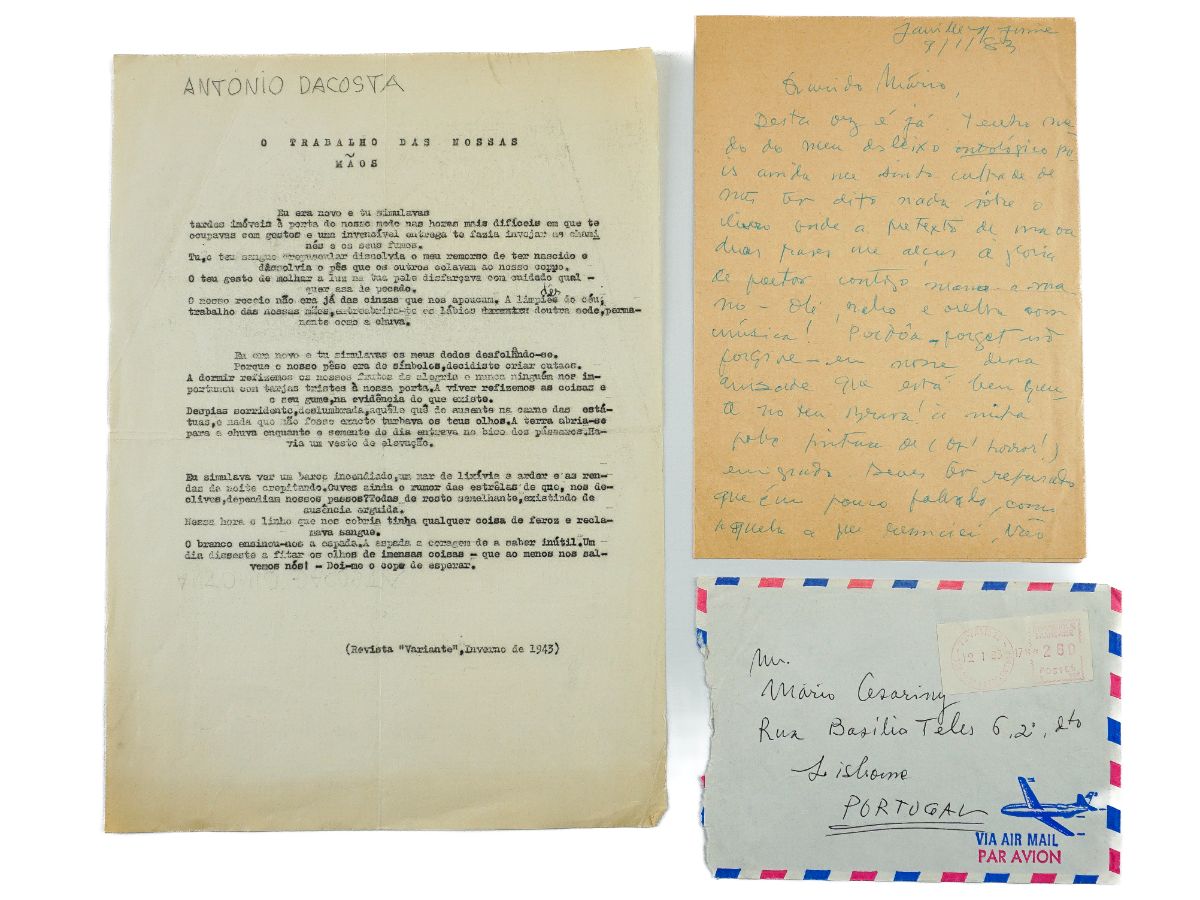 ANTÓNIO DACOSTA
O TRABALHO DAS NOSSAS
MÃOS
Eu era novo e tu simulavas
tardes imóveis à porta do nosso medo nas horas mais difíceis em que te
ocupavas com gestos e uma invencível entrega te fazia invejar as chami
nés e os seus fumos.
Tu,o teu sangue crepuscular dissolvia o meu remorso de ter nascido e
dissolvia o pês que os outros colavam ao nosso corpo.
O teu gesto de molhar a luz na tua pele disfarçava com cuidado qual -
quer asa de pecado.
O nosso receio não era já das cinzas que nos apoucam. A limpidez do céu,
trabalho das nossas mãos,entreabria-te os lábios doutra sede,perma-
nente como a chuva.
Eu era novo e tu simulavas os meus dedos desfolhando-se.
Porque o nosso pêso era de símbolos,decidiste criar outros.
A dormir refizemos os nossos frutos de alegria e nunca ninguém nos im-
portunou com tarjas tristes à nossa porta.A viver refizemos as coisas e
o seu gume,na evidência do que existe.
Despias sorridente,deslumbrada,aquêle quê de ausente na carne das está-
tuas,e nada que não fosse exacto turbava os teus olhos.A terra abria-se
para a chuva enquanto a semente do dia entrava no bico dos pássaros.Ha-
via um vasto de elevação.
Eu simulava ver um barco incendiado,um mar de lixívia a arder e as ren-
das da noite crepitando.Ouves ainda o rumor das estrêlas de que, nos de-
clives,dependiam nossos passos?Todas de rosto semelhante,existindo de
ausência erguida.
Nessa hora o linho que nos cobria tinha qualquer coisa de feroz e recla-
mava sangue.
O branco ensinou-nos a espada.A espada a coragem de a saber inútil.Um
dia disseste a fitar os olhos de imensas coisas - que ao menos nos sal-
vemos nós! - Doi-me o cope de esperar.
(Revista "Variante",Inverno de 1943)
9/1/83
Querido Mário,
Desta vez é já. Tenho me-
do do meu desleixo ontológico po-
is ainda me sinto culpado de
não ter dito nada sôbre o
livro onde a pretexto de uma ou
duas frases me alças à glória
de poetar contigo mano-a-ma
no - Olé,
música! Perdôa - forget not
forgive - em nome dessa
amizade que está bem quen-
te no teu
pintura de (oh! horror!)
emigrado Deves ter reparado
que é um pouco falhado, como
aquela a que renunciei, Não
12-1-83
280
POSTES
Mr.
Mário Cesariny
Rua Basílio Teles 6, 2º, dto
Lisbonne
PORTUGAL
VIA AIR MAIL
PAR AVION